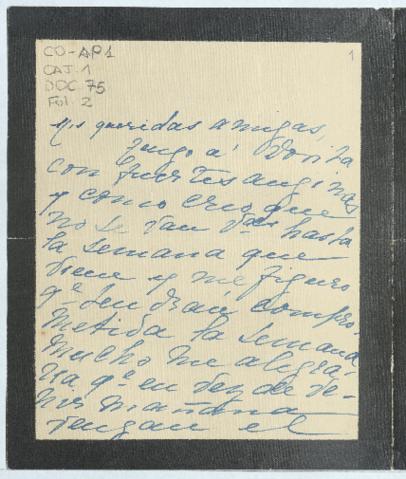 CO-AP1
CAJ. 1
DOC. 75
Fol. 2
1
Mis queridas amigas,
Tengo á Dorita
con fuertes anginas
y como creo que
no se van Vdas hasta
la semana que
viene y me figuro
qe tendrán compro-
metida la semana
mucho me alegra-
ria qe en vez de ve-
nir mañana
vengan el